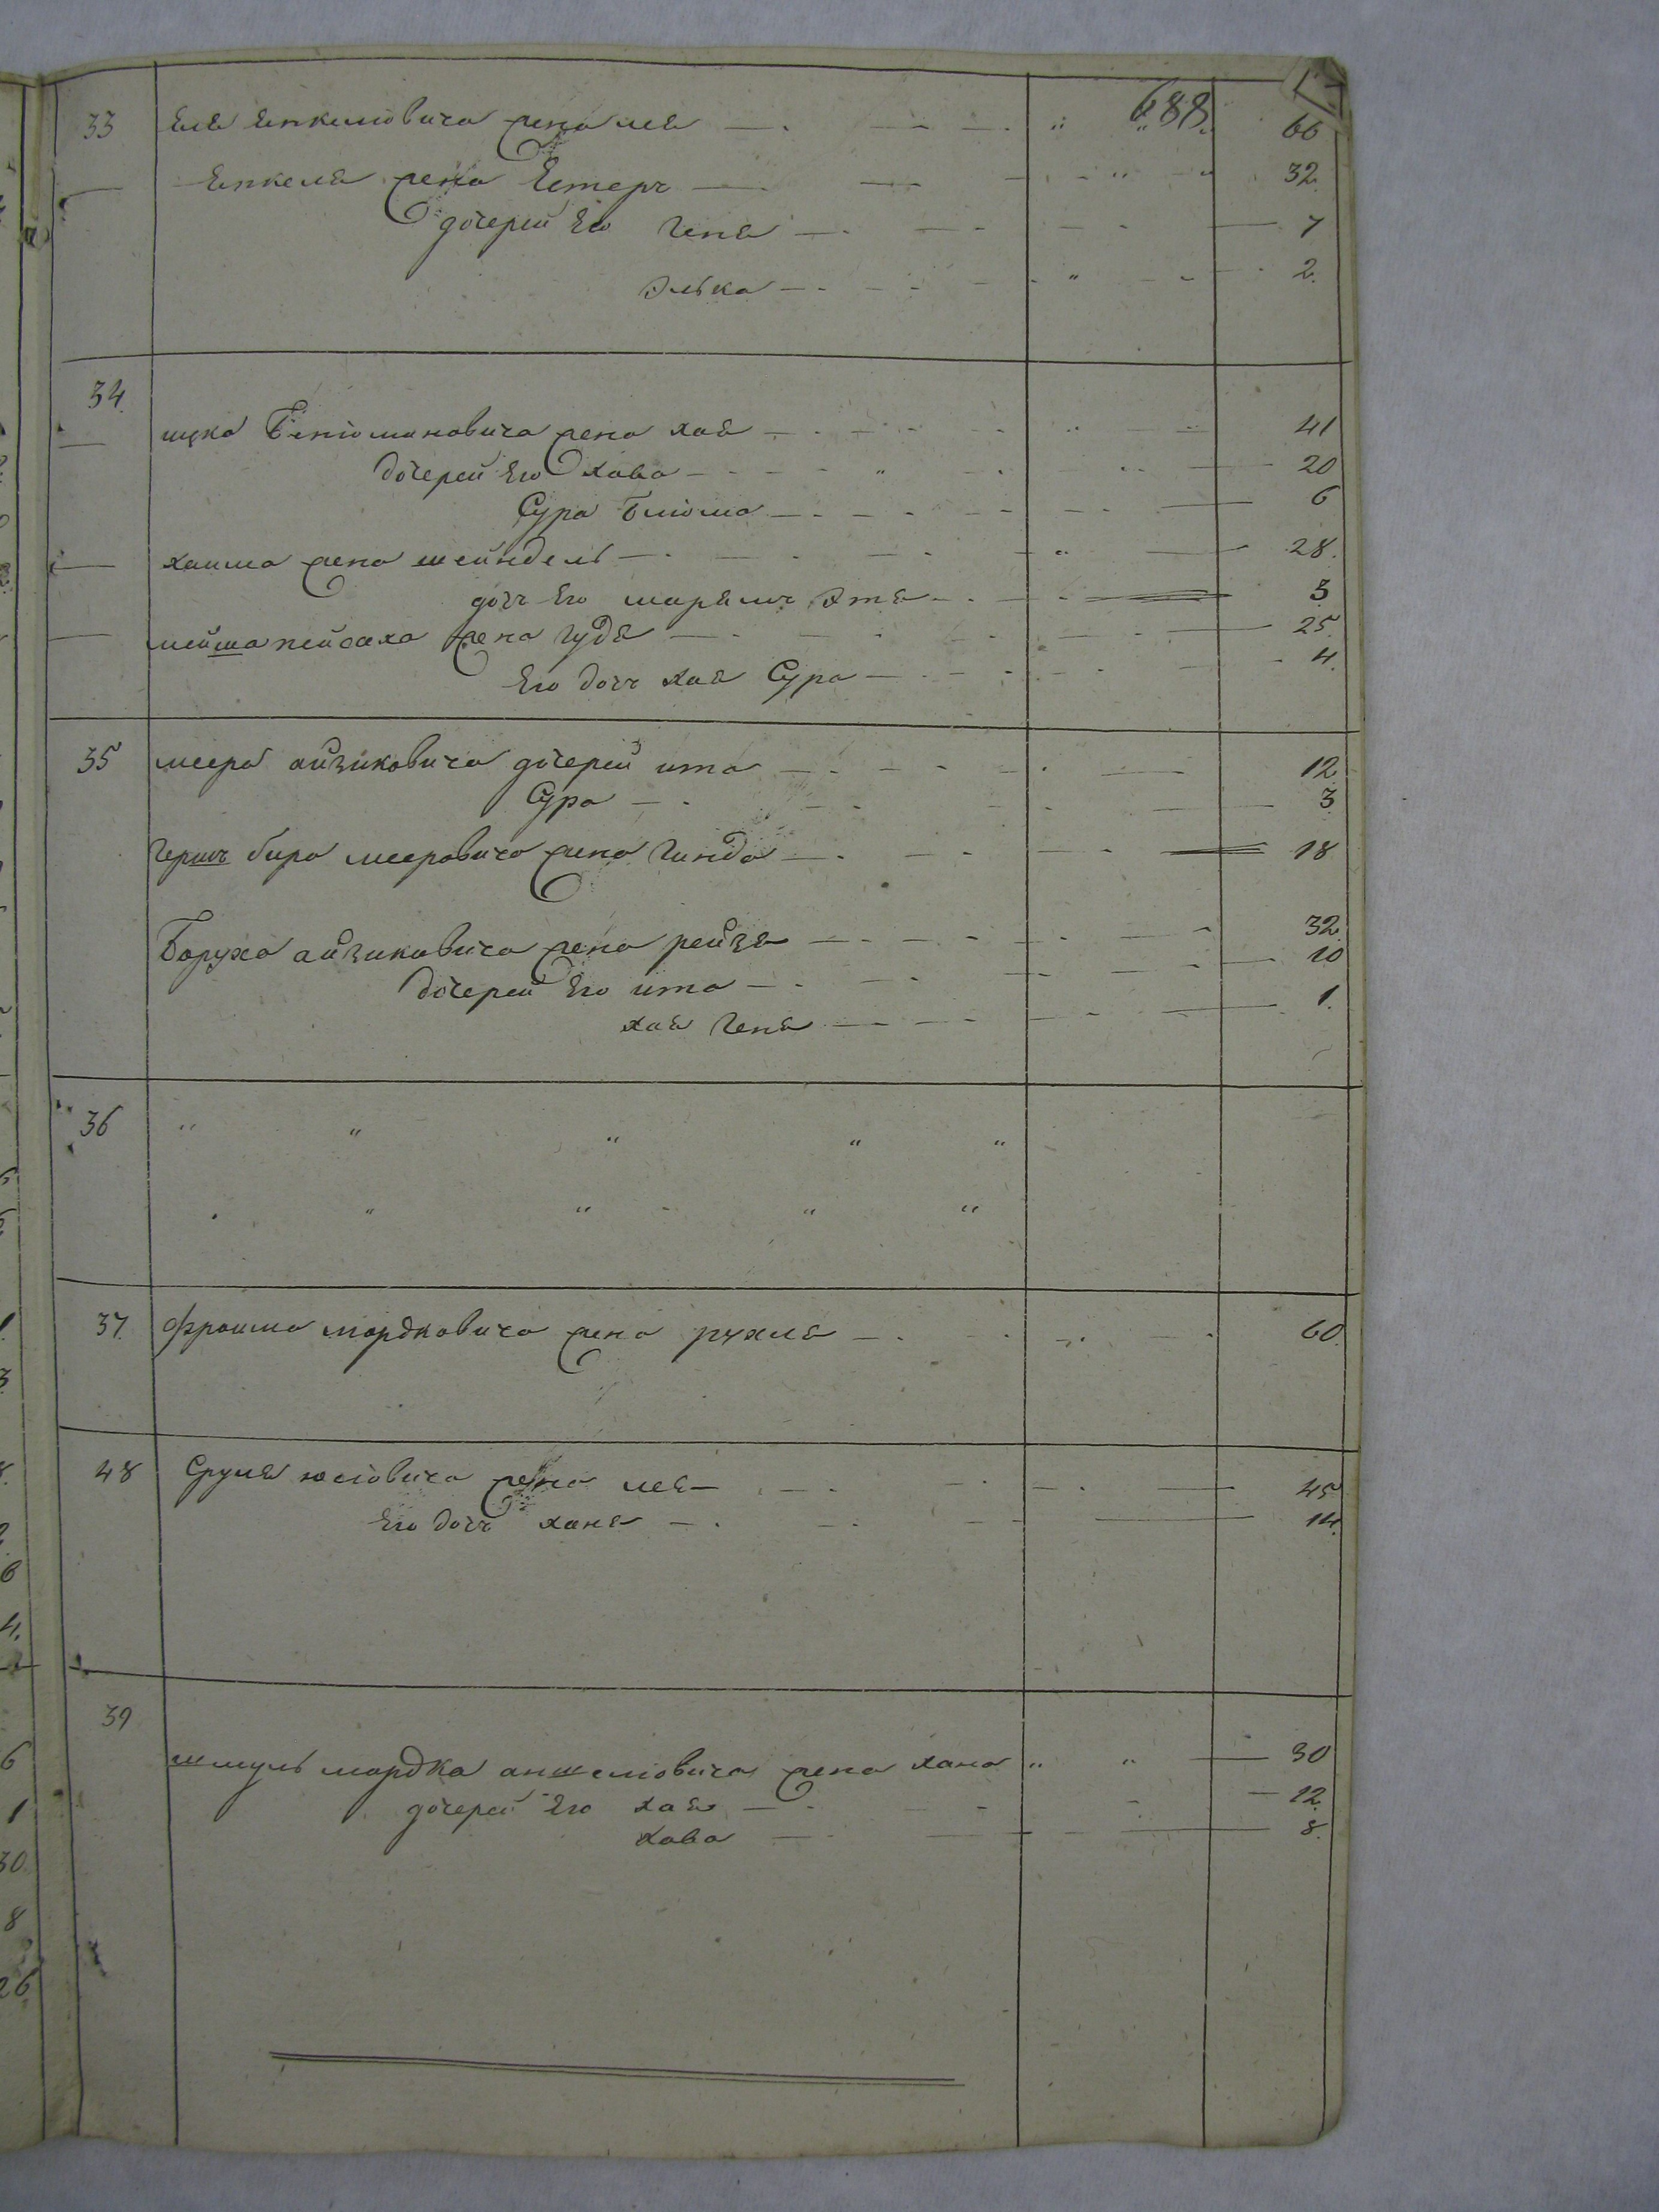 688
33 Еля Енкелювича жена лея 66
Енкеля жена Естеръ 32
дочерей Его геня 7
Элька 2
34
ицка Бенюминовича жена хая 41
дочерей Его хава 20
Сура Блюма 6
хаима жена шейндель 28
дочъ Его маремъ Этя 3
мейша пейсаха жена гудя 25
Его дочъ хая Сура 4
35 меера айзиковича дочерей ита 12
Сура 3
гершъ бира мееровича жена гинда 18
Боруха айзиковича жена рейзя 32
дочерей Его ита 10
хая геня 1
36
37 фроима мордковича жена рухля 60
48 Сруля юсіовича жена лея 45
Его дочъ ханя 14
39
шмуль мордка аншелювича жена хана 30
дочерей Его хая 12
хава 8